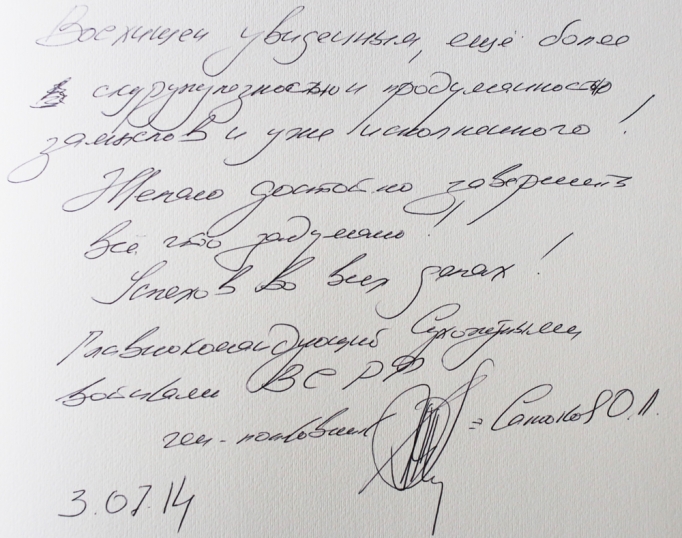 Восхищен увиденным, ещё более
скурупулезностью и продуманностью
замыслов и уже исполненного!
Желаю достойно завершить
всё что задумано!
Успехов во всех делах!
Главнокомандующий Сухопутными
войсками ВС РФ
ген-полковник = Салюков О.Л.
3.07.14